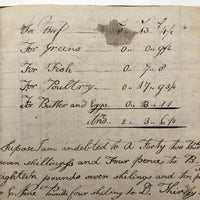 For Beef 13 4½
For Greens 0 0 9½
For Fish 0 7 8
For Poultry 0 17 9¾
For Butter and Eggs 0 3 11
Ans. 2 3 6½
Suppose I am indebted to A Forty two
seven shillings and Four pence to B.
eighteen pounds seven shilings and ten
nine Pounds four shiling to D. Thirty